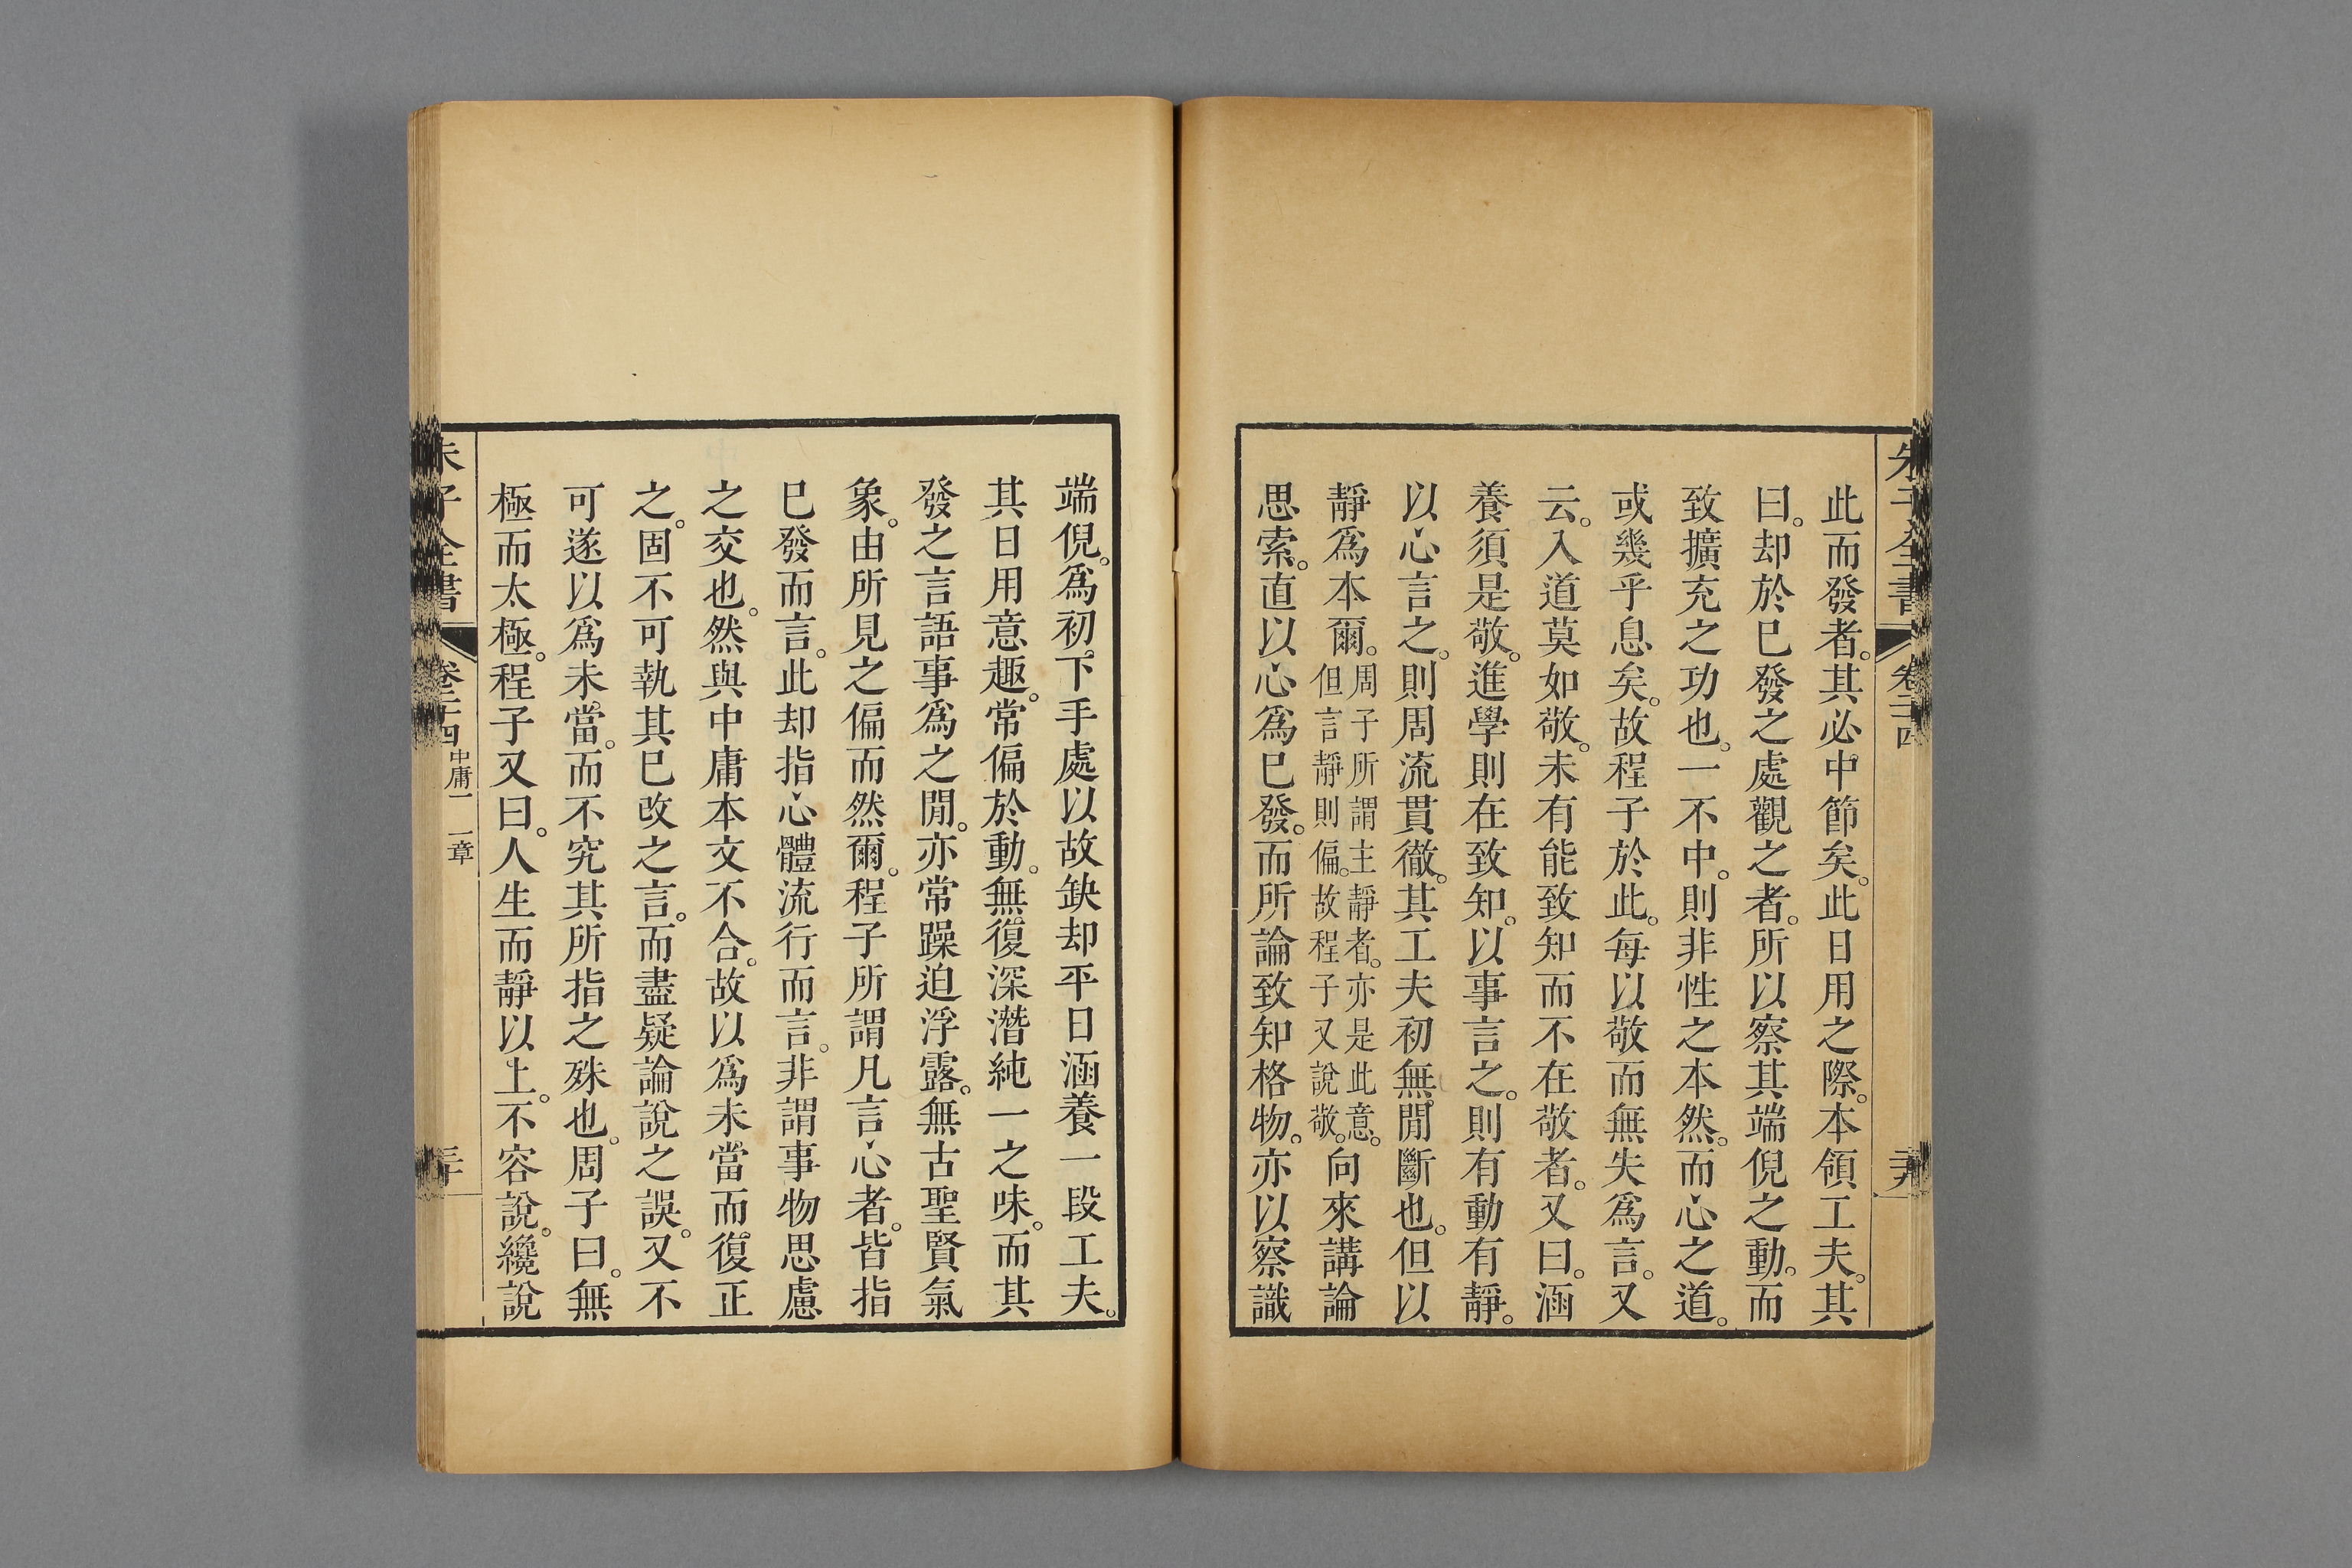 朱子全書 卷二十四 二十九
此而發者。其必中節矣。此日用之際。本領工夫。其
曰。却於已發之處觀之者。所以察其端倪之動。而
致擴充之功也。一不中。則非性之本然。而心之道。
或幾乎息矣。故程子於此。每以敬而無失爲言。又
云。入道莫如敬。未有能致知而不在敬者。又曰。涵
養須是敬。進學則在致知。以事言之。則有動有靜。
以心言之。則周流貫徹。其工夫初無閒斷也。但以
靜爲本爾。周子所謂主靜者。亦是此意。但言靜則偏。故程子又說敬。向來講論
思索。直以心爲已發。而所論致知格物。亦以察識
端倪。爲初下手處以故缺却平日涵養一段工夫。
其日用意趣。常偏於動。無復深潛純一之味。而其
發之言語事爲之閒。亦常躁迫浮露。無古聖賢氣
象。由所見之偏而然爾。程子所謂凡言心者。皆指
已發而言。此却指心體流行而言。非謂事物思慮
之交也。然與中庸本文不合。故以爲未當而復正
之。固不可執其已改之言。而盡疑論說之誤。又不
可遂以爲未當。而不究其所指之殊也。周子曰。無
極而太極。程子又曰。人生而靜以上。不容說。纔說
朱子全書 卷二十四 中庸一 一章 三十